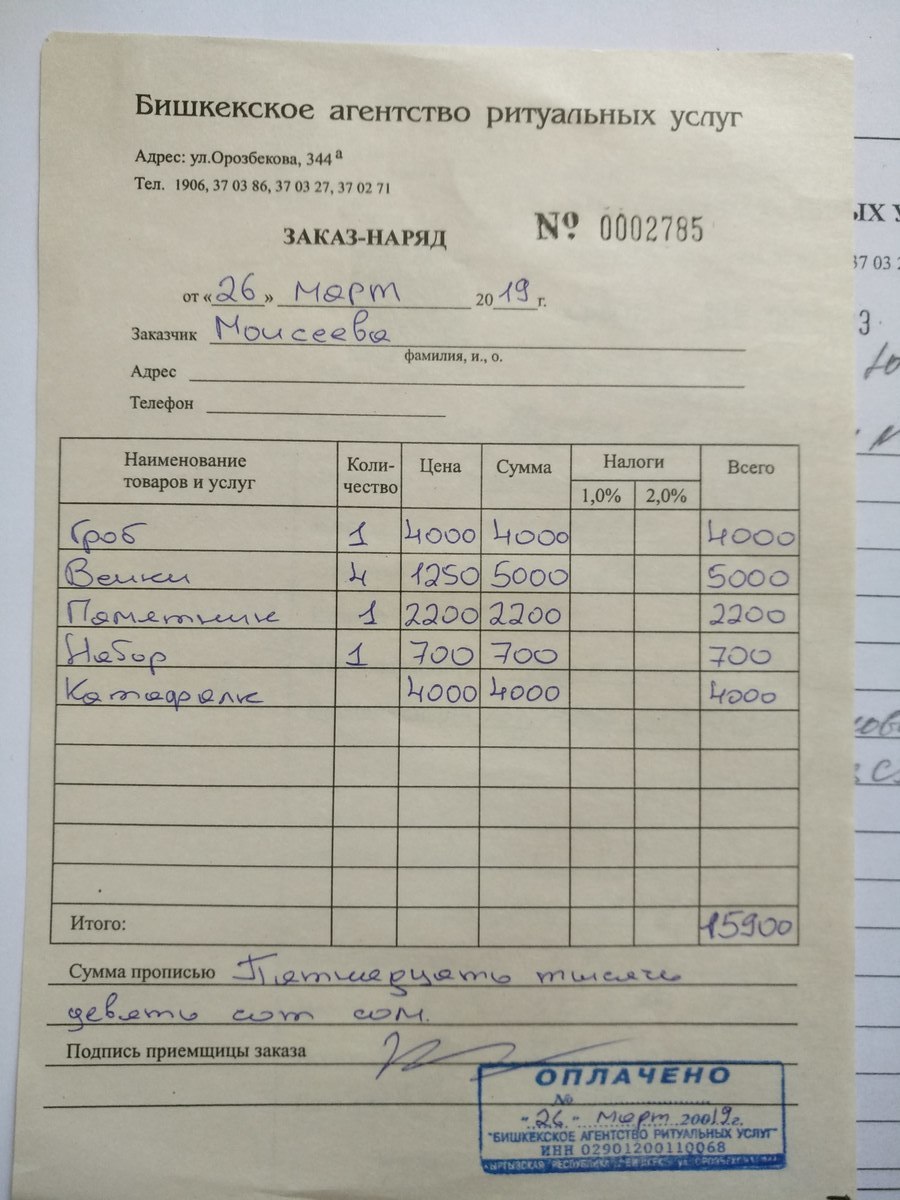 Бишкекское агентство ритуальных услуг
Адрес: ул.Орозбекова, 344 а
Тел. 1906, 37 03 86, 37 03 27, 37 02 71
ЗАКАЗ-НАРЯД № 0002785
от «26» март 2019 г.
Заказчик Моисеева
фамилия, и., о.
Адрес
Телефон
Наименование товаров и услуг Коли-чество Цена Сумма Налоги 1,0% 2,0% Всего
Гроб 1 4000 4000 4000
Венки 4 1250 5000 5000
Памятник 1 2200 2200 2200
Набор 1 700 700 700
Катафалк 4000 4000 4000
Итого: 15900
Сумма прописью Пятнадцать тысяч
девять сот сом.
Подпись приемщицы заказа
ОПЛАЧЕНО
№
"26" март 20019г.
"БИШКЕКСКОЕ АГЕНТСТВО РИТУАЛЬНЫХ УСЛУГ"
ИНН 02901200110068
КЫРГЫЗСКАЯ РЕСПУБЛИКА
37 03